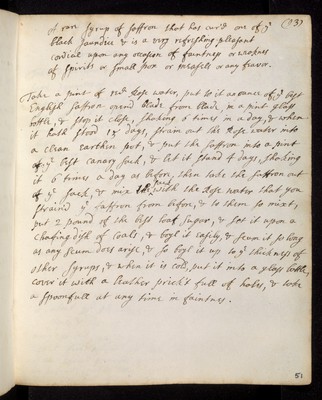 (103)
of rare syrup of saffron that has cur'd one of yᵉ
black Jaundise & is a very refreshing pleasant
cordial upon any occasion of faintness or weakness
of spirits or small pox or measels or any feavor.
Take a pint of red Rose water, put to it an ounce of yᵉ best
English saffron blade from blade, in a pint glass
bottle, & stop it close, shaking 6 times in a day, & when
it hath stood 12 days, strain out the Rose water into
a clean earthen pot, & put the saffron into a pint
of yᵉ best canary sack, & let it stand 4 days, shaking
it 6 times a day as before, then take the saffron out
of yᵉ sack, & mix sack with the Rose water that you
strained yᵉ saffron from before, & to them so mixt,
put 2 pound of the best loaf sugar, & set it upon a
Chafing dish of Coals, & boyl it easily, & scum it so long
as any scum does arise, & so boyl it up to yᵉ thickness of
other syrups, & when it is cold, put it into a glass bottle,
cover it with a leather prick't full of holes, & take
a spoonfull at any time in faintnes.
51